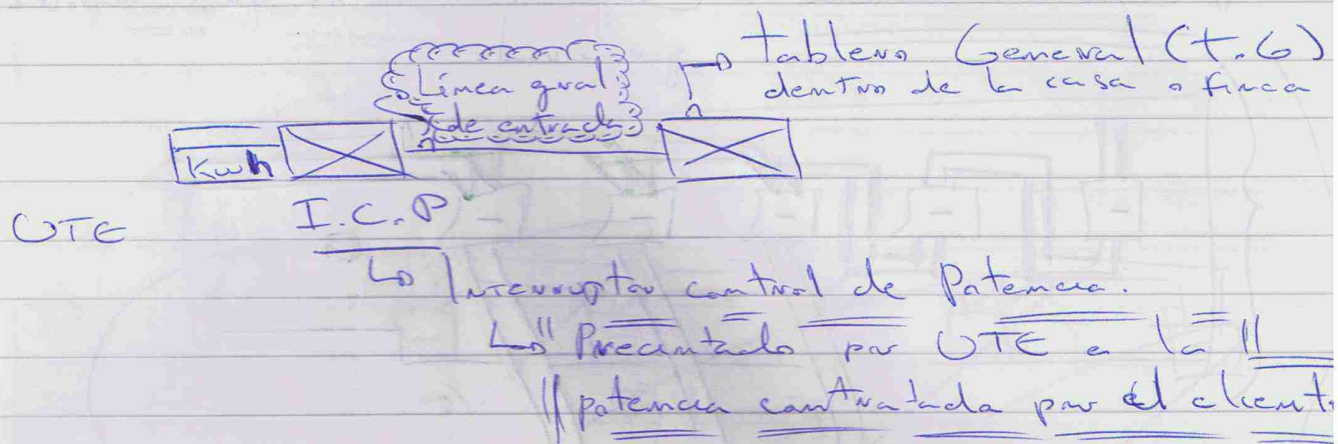 tablero General (t.G)
dentro de la casa o finca
Línea gral
de entrada
Kwh
UTE
I.C.P
Interruptor control de Potencia.
" Precintado por UTE a la "
" potencia contratada por el client.